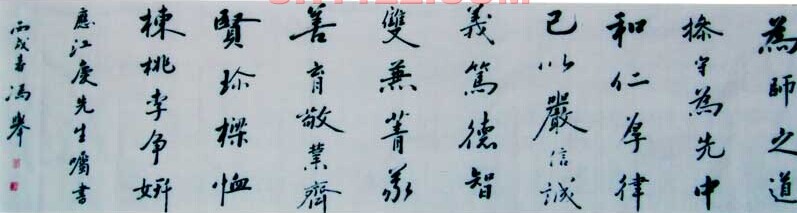 為師之道
操守為先中
和仁厚律
己以嚴信誠
義篤德智
雙兼菁莪
善育敬業齊
賢珍樑恤
棟桃李争妍
應江慶先生囑書
丙戌春馮舉